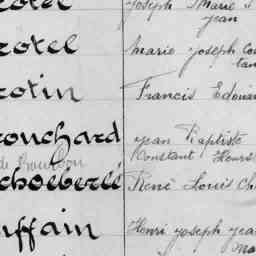 Joseph Marie
Jean
rotel
Marie Joseph
rotin
Francis
rouchard
Jean Baptiste
de Bourbon
Constant Henri
choeberlé
René Louis Ch
uffain
Henri Joseph Jea